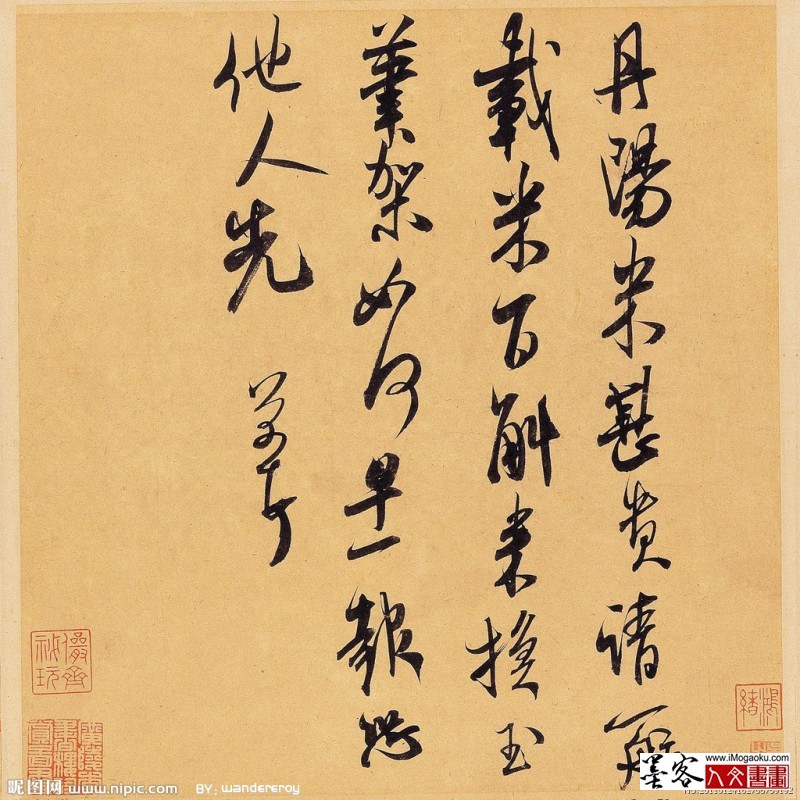 丹陽米甚貴請一航
載米百斛來換玉
筆架如何早一報恐
他人先
芾頓首
儼齋秘玩
鴻緒
昵图网 www.nipic.com BY: wandereroy
墨客 www.iMogaoku.com